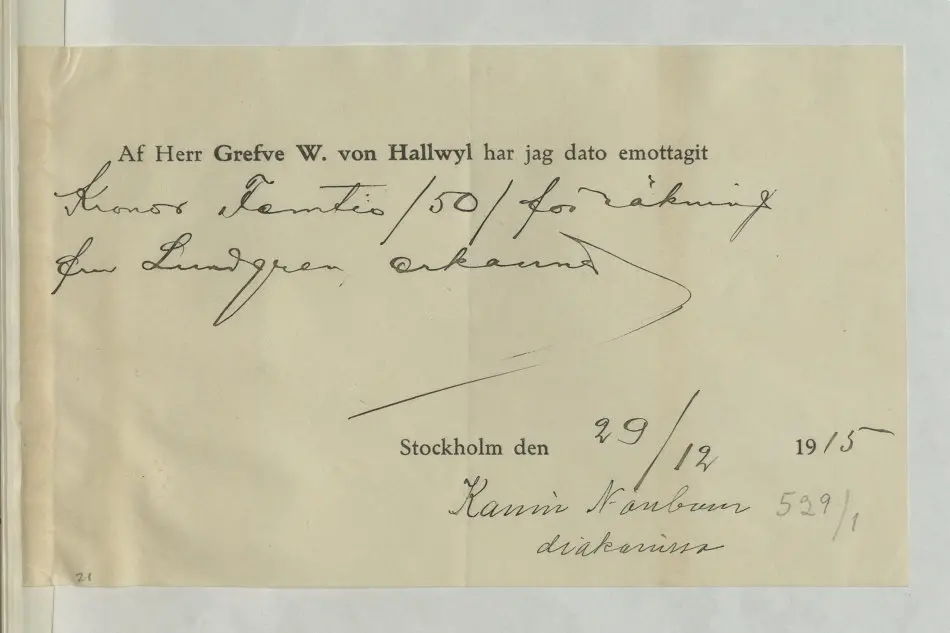 Af Herr Grefve W. von Hallwyl har jag dato emottagit
Kronor Femtio /50/ för räkning
fru Lundgren, erkännes
Stockholm den 29/12 1915
Karin
diakonissa
529/1
21